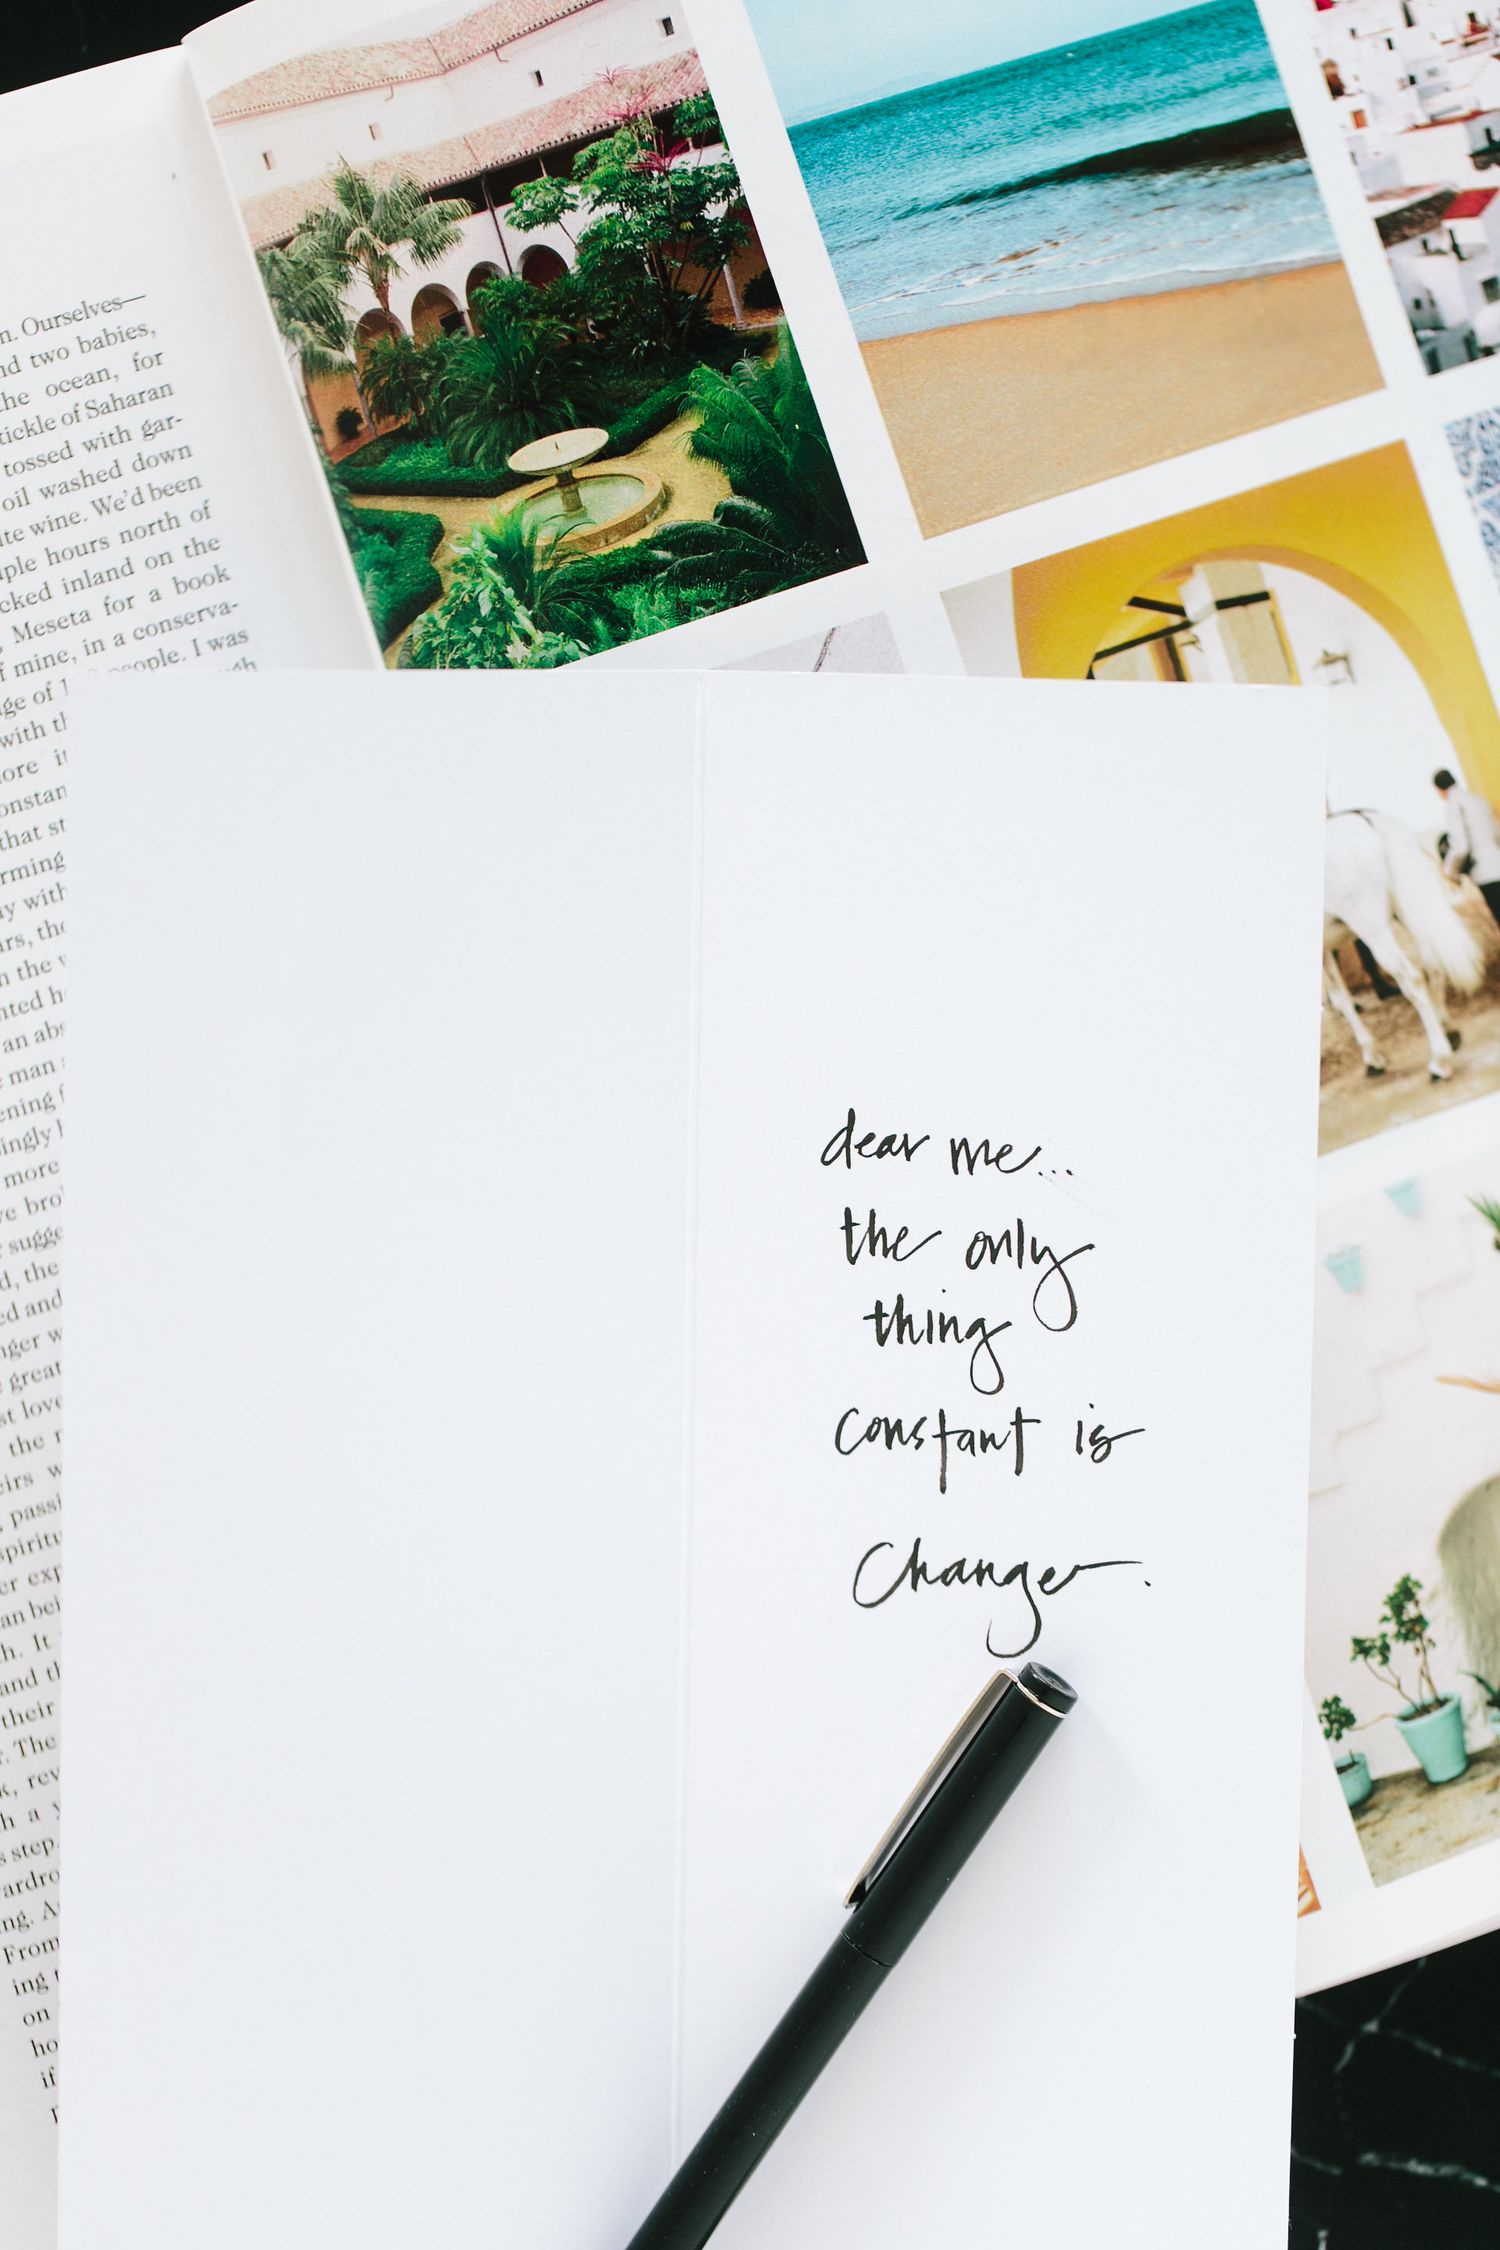 n. Ourselves—
nd two babies,
the ocean, for
tickle of Saharan
tossed with gar-
oil washed down
ite wine. We'd been
ple hours north of
cked inland on the
Meseta for a book
f mine, in a conserva-
ge of people. I was
with th
ore it
onstan
that st
rming
ay with
ars, the
n the v
nted h
an abs
man
ening f
ingly
more
ve bro
sugge
d, the
ed and
nger w
great
st love
the
eirs w
passi
spiritu
er exp
an bei
h. It
and th
their
. The
k, rev
h a y
s step.
ardro
ng. A
From
ing
on
ho
if
dear me...
the only
thing
constant is
Change.